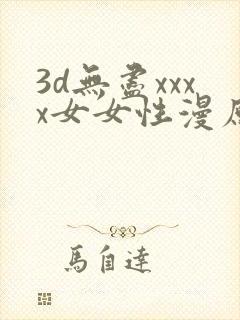 3d無盡xxx
x女女性漫
馬自達